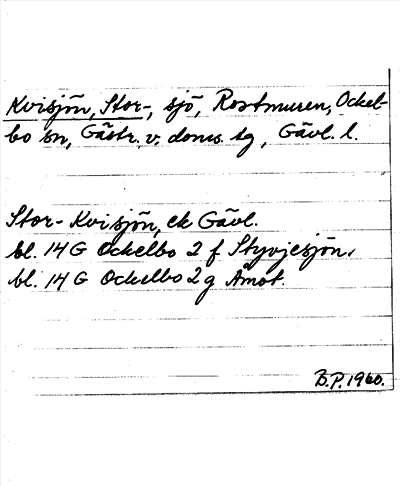 Kvisjön, Stor-, sjö, Rostmuren, Ockel-
bo sn, Gästr. v. doms. tg, Gävl. l.
Stor-Kvisjön, ek Gävl.
bl. 14 G Ockelbo 2 f Styvjesjön,
bl. 14 G Ockelbo 2 g Åmot.
B.P. 1960.